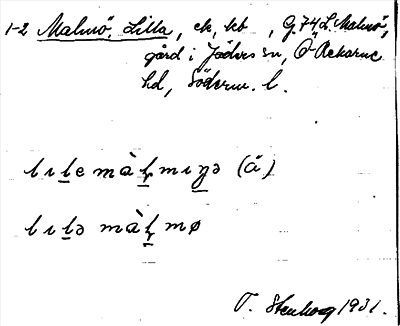 1-2 Malmö, Lilla, ek, kb, G 74 L. Malmö,
gård i Jäders sn, Ö-Rekarne
hd, Söderm. l.
lɩle màlmɩŋə (ä)
lɩlə màlmø
T. Stenhag 1931.